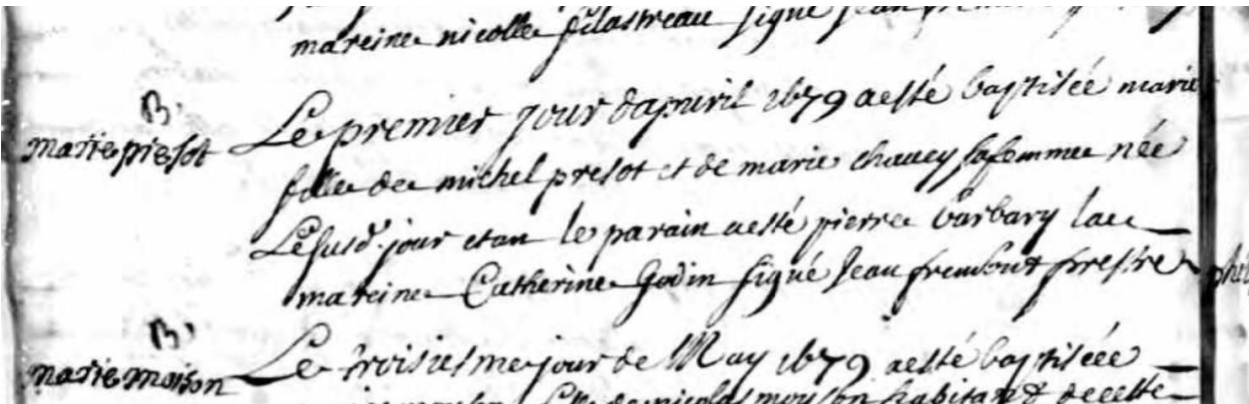 mareine nicolle filastreau signé Jean
B.
marie presot
Le premier jour dapuril 1679 a esté baptisée marie
fille de michel presot et de marie chauey sa femme née
Le susd. jour et an le parain a esté pierre barbary la
mareine Catherine Godin signé Jean fremont prestre
B.
marie moison
Le troisiesme jour de May 1679 a esté baptisée
fille de nicolas moyson habitant de cette